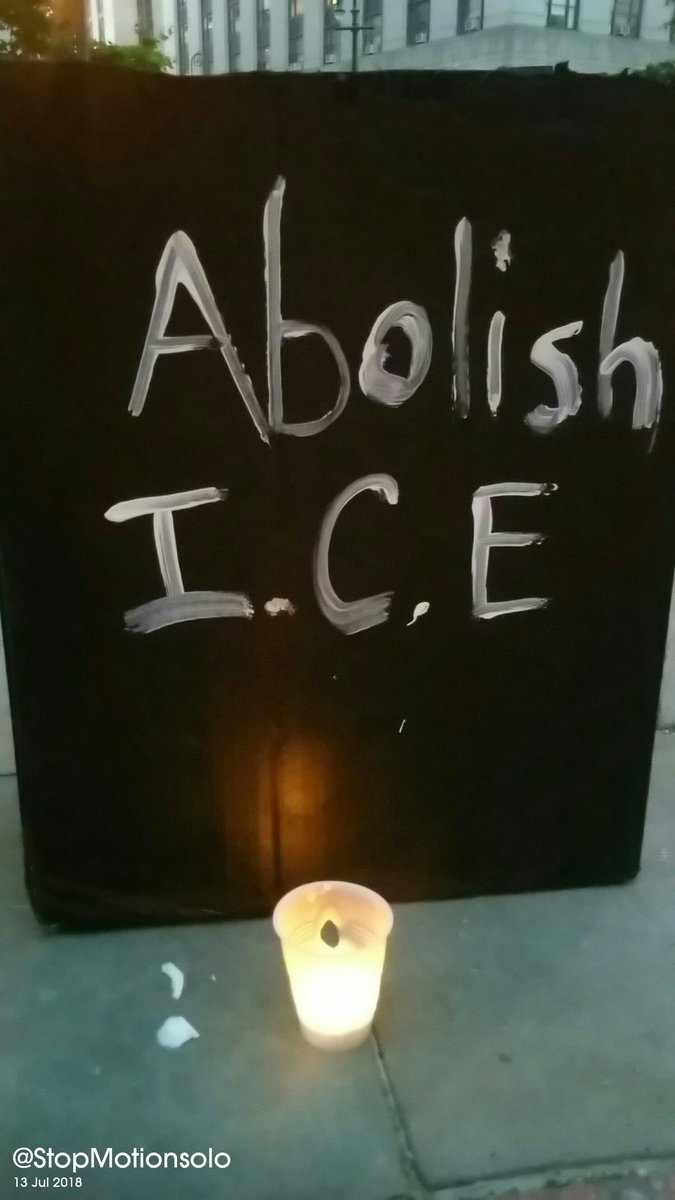 Abolish
I.C.E
@StopMotionsolo
13 Jul 2018